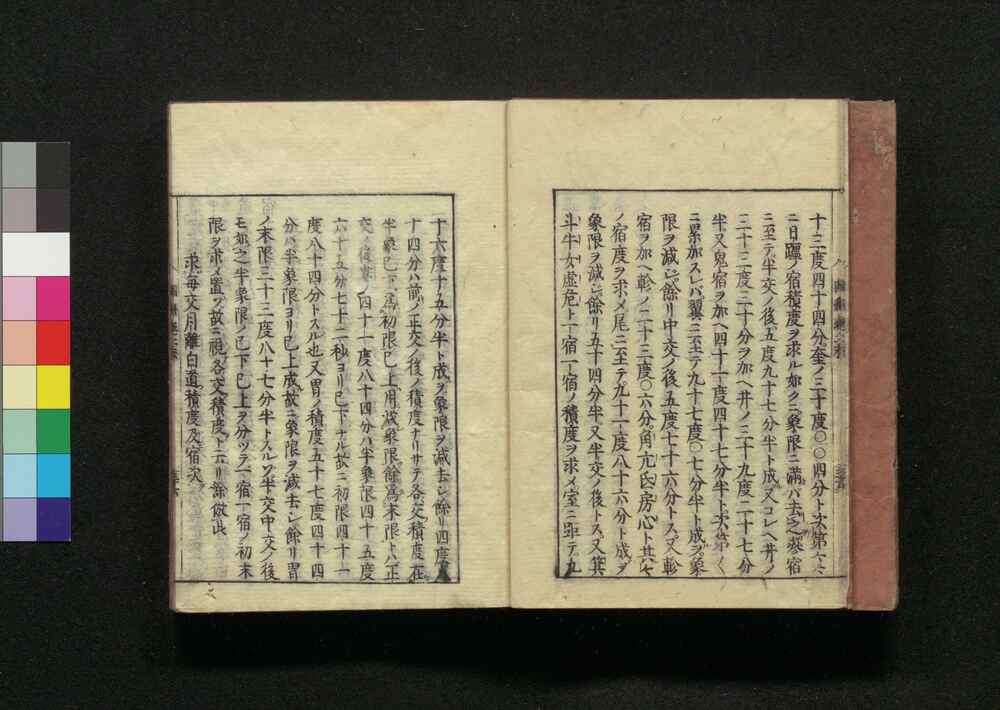 十三度四十四分奎ノ三十度〇〇四分ト次第々々
ニ日躔ノ宿積度ヲ求ル如クニ象限ニ満バ去之参宿
ニ至テ半交ノ後五度九十七分半ト成又コレヘ井ノ
三十三度三十分ヲ加ヘ井ノ三十九度二十七分
半又鬼宿ヲ加ヘ四十一度四十七分半ト次第々
ニ累加スレバ翼ニ至テ九十七度〇七分半ト成ヲ象
限ヲ減シ餘リ中交ノ後五度七十六分トス又軫
宿ヲ加ヘ軫ノ二十三度〇六分角亢氐房心ト其々
ノ宿度ヲ求メ尾ニ至テ九十一度八十六分ト成ヲ
象限ヲ減シ餘リ五十四分半又半交ノ後トス又箕
斗牛女虚危ト一宿一宿ノ積度ヲ求メ室ニ至テ九
十六度十五分半ト成ヲ象限ヲ減去シ餘リ四度八
十四分ハ前ノ正交ノ後ノ積度ナリサテ各交積度在
半象已下為初限已上用減象限餘為末限トハ正
交ノ後婁ノ四十一度八十四分ハ半象限四十五度
六十五分七十二秒ヨリ已下ナル故ニ初限四十一
度八十四分トスル也又胃ノ積度五十七度四十四
分ハ半象限ヨリ已上成故ニ象限ヲ減去シ餘リ胃
ノ末限三十三度八十七分半トスルソ半交中交ノ後
モ如之半象限ノ已下已上ヲ分ツテ一宿一宿ノ初末
限ヲ求メ置ソ故ニ視各交積度ト云リ餘倣此
求毎交月離白道積度及宿次